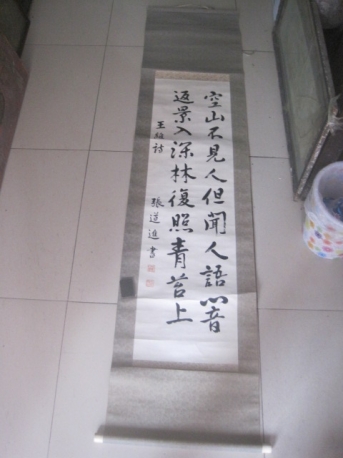 空山不見人但聞人語響
返景入深林復照青苔上
王維詩
張道進書